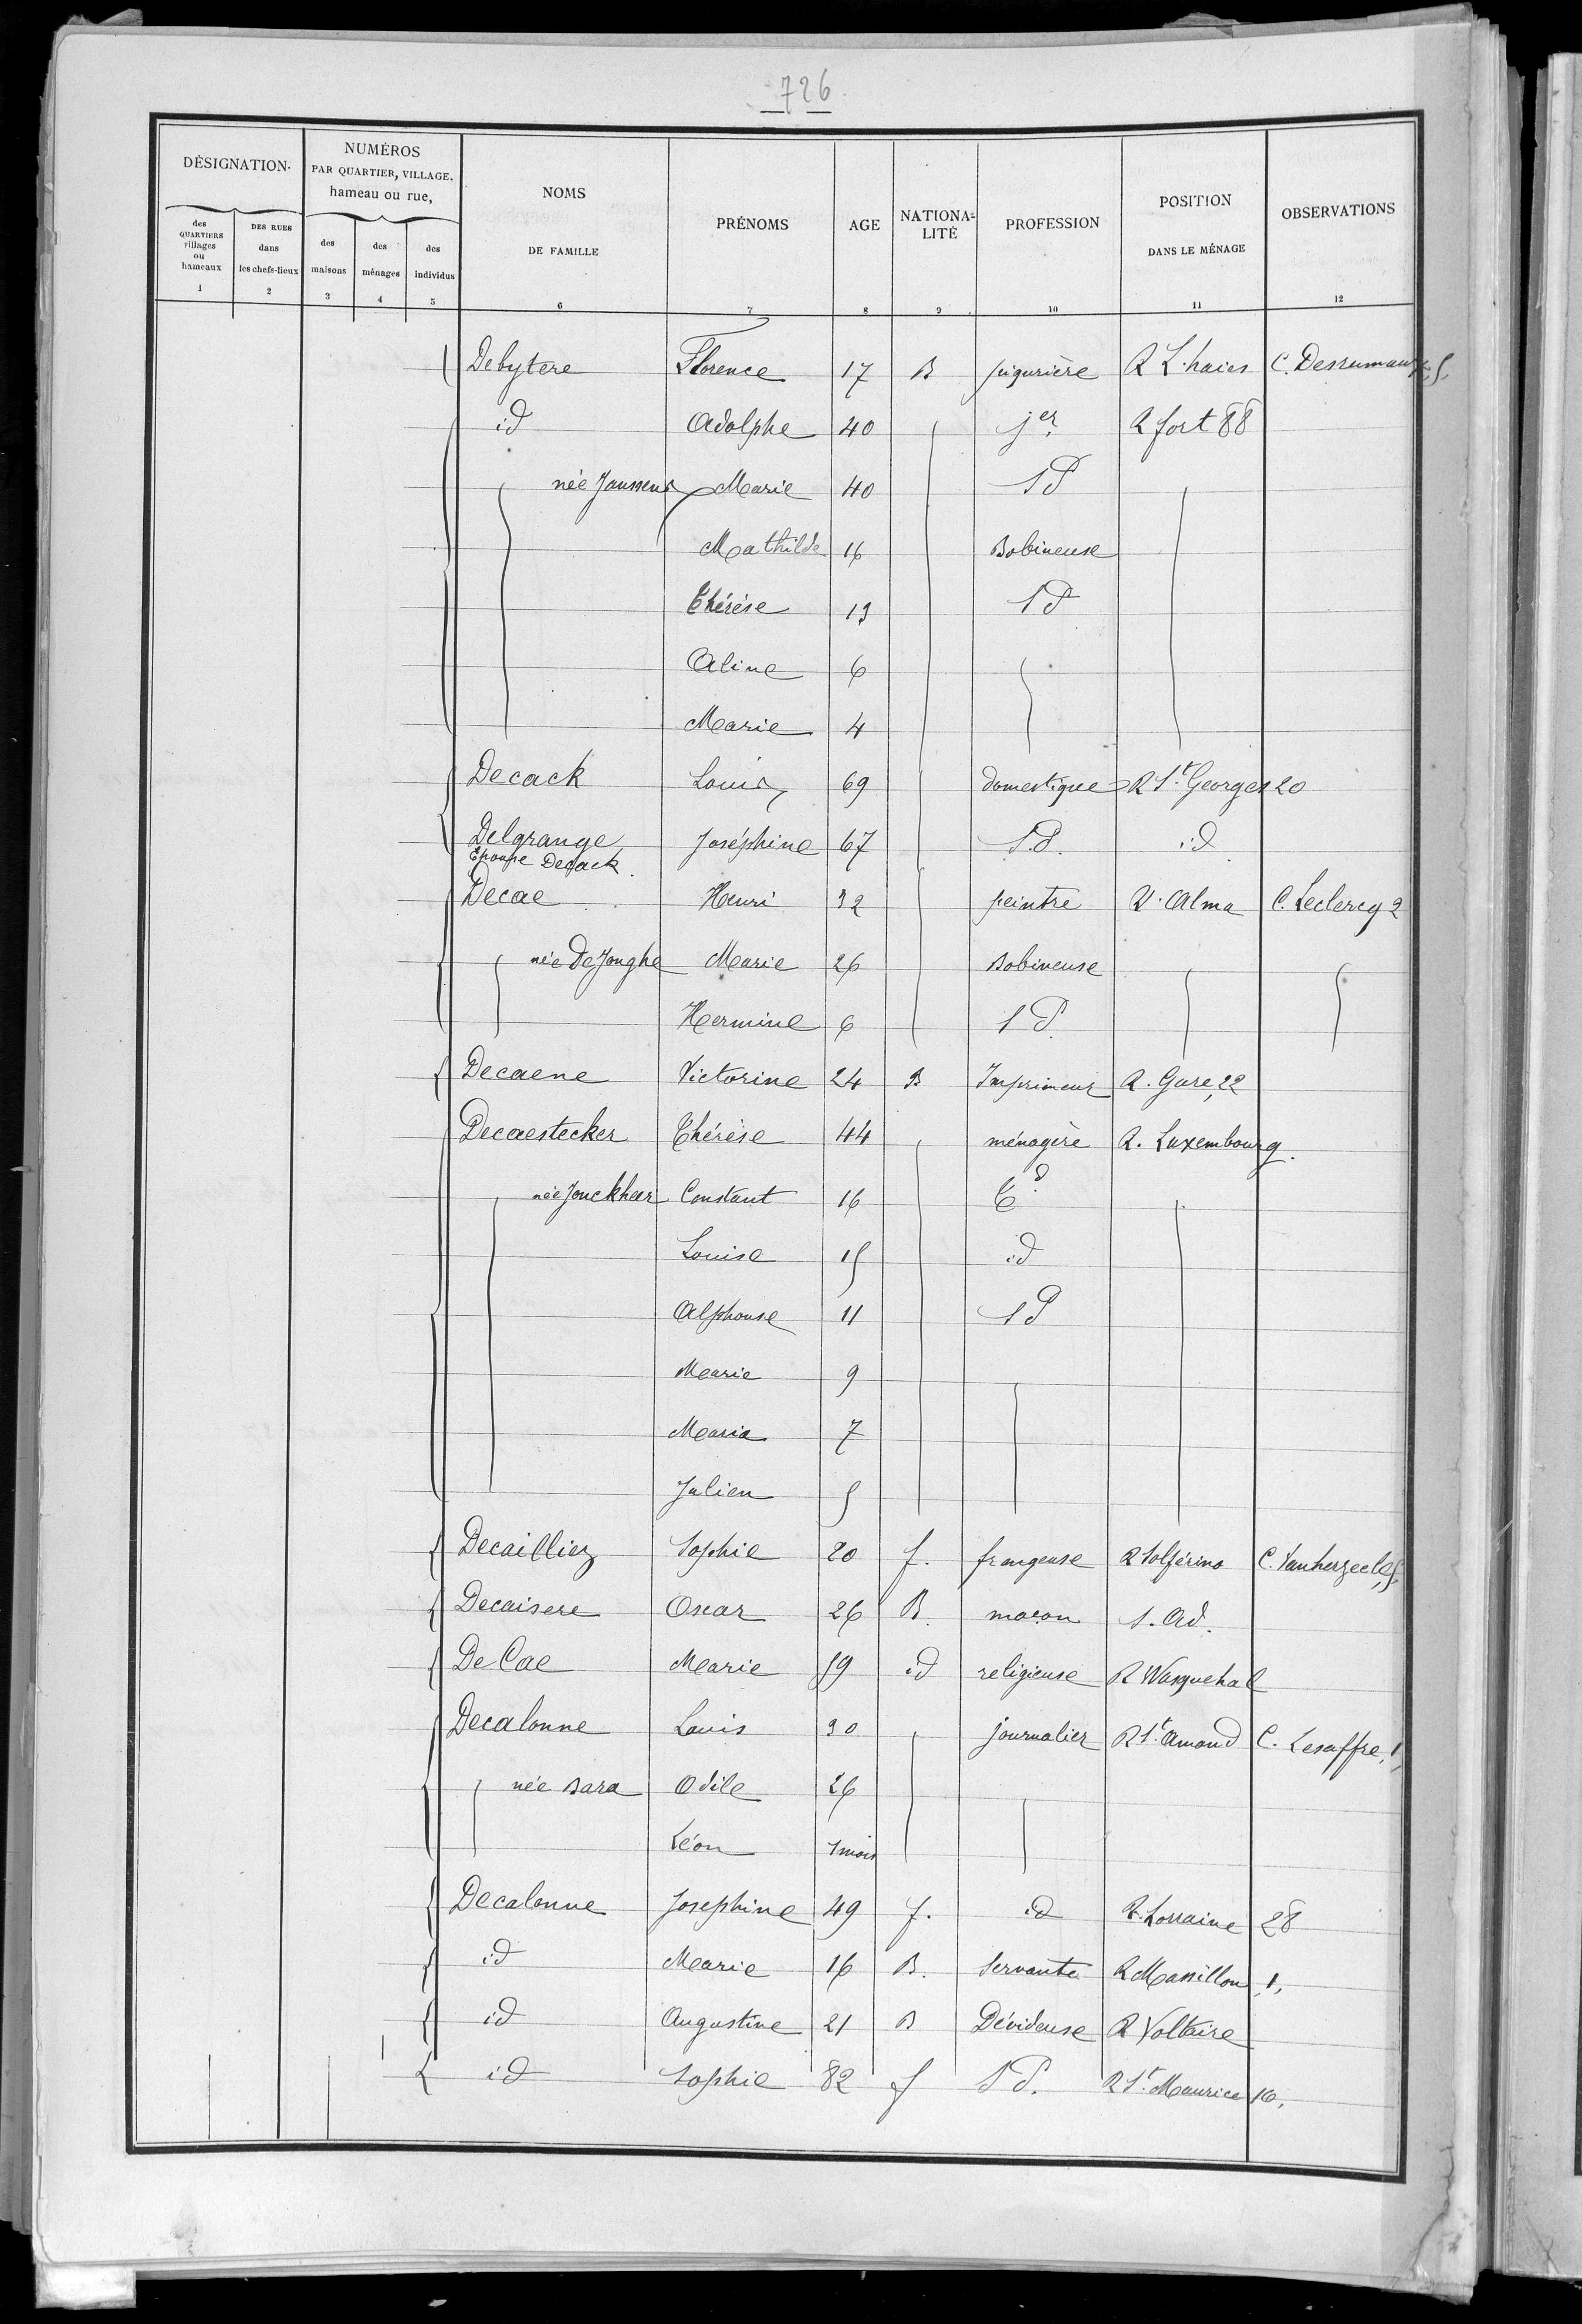 726
DÉSIGNATION
NUMÉROS PAR QUARTIER, VILLAGE. hameau ou rue,
NOMS DE FAMILLE
PRÉNOMS
AGE
NATIONA-LITÉ
PROFESSION
POSITION DANS LE MÉNAGE
OBSERVATIONS
des QUARTIERS villages ou hameaux
DES RUES dans les chefs-lieux
des maisons
des ménages
des individus
1 2 3 4 5 6 7 8 9 10 11 12
Debytere Florence 17 B piqurière R L. haies C. Desrumaux, 5,
id Adolphe 40 jer R fort 88
née Janssens Marie 40 SP
Mathilde 16 Bobineuse
Thérèse 13 SP
Aline 6
Marie 4
Decack Louis 69 domestique R St Georges 20
Delgrange Joséphine 67 S.P. id
Epouse Decack
Decae Henri 32 peintre R. Alma C. Leclercq 2
née DeJonghe Marie 26 Bobineuse
Hermine 6 SP
Decaene Victorine 24 B Imprimeur R. Gare, 22
Decaestecker Thérèse 44 ménagère R. Luxembourg.
née Jonckheer Constant 16 Td
Louise 15 id
Alphonse 11 SP
Marie 9
Maria 7
Julien 5
Decailliez Sophie 20 f. frangeuse R Solférino C. Vanherzecle, 5,
Decaisere Oscar 26 B. maçon S. Ad.
De Cae Marie 59 id religieuse R Wasquehal
Decalonne Louis 30 journalier R St. Amand C. Lesaffre, 1,
née Bara Odile 26
Léon 1 mois
Decalonne Josephine 49 f. id R. Lorraine 28
id Marie 16 B. Servante R Massillon, 1,
id Augustine 21 B Dévideuse R Voltaire
id Sophie 82 f SP. R St. Maurice 10,